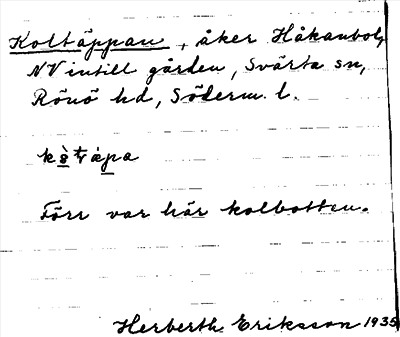 Koltäppan, åker Håkanbol,
NV intill gården, Svärta sn,
Rönö hd, Söderm. l.
Förr var här kolbotten.
Herberth Eriksson 1935